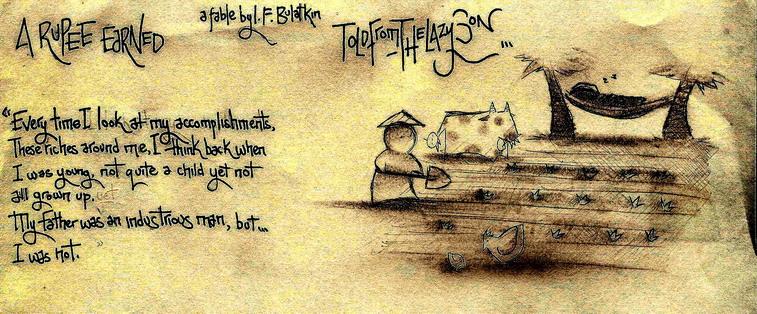 A RUPEE EARNED
a fable by I. F. Bulatkin
TOLD From THE LAZY SON ...
"Every time I look at my accomplishments,
These riches around me, I think back when
I was young, not quite a child yet not
all grown up.
My father was an industrious man, but...
I was not."
z z